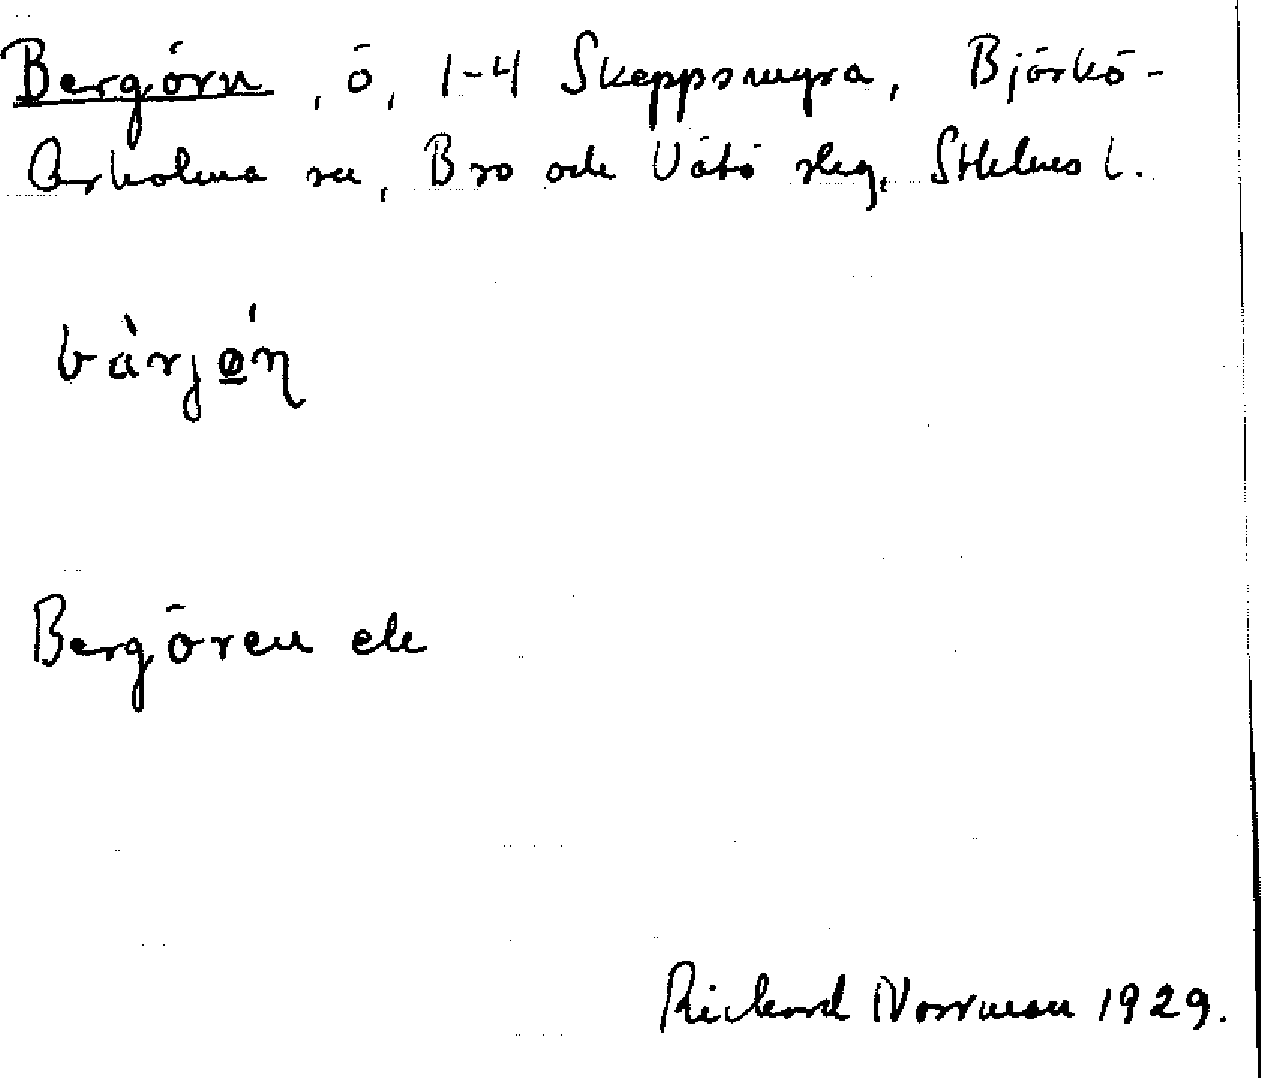 Bergörn, ö, 1-4 Skeppsmyra, Björkö-
Arholma sn, Bro och Vätö slg, Sthlms l.
bàrjøņ
Bergören ek
Rickard Norrman 1929.